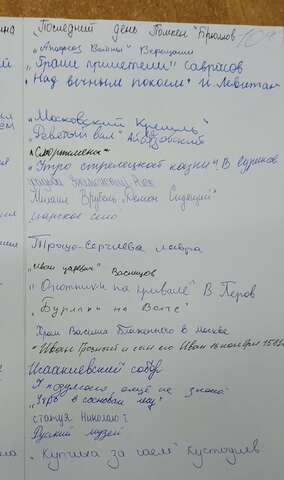 Последний день Помпеи" Брюллов
„Апофеоз Войны" Верещагин
„Грачи прилетели" Саврасов
„Над вечным покоем" И Левитан
„Московский Кремль"
„Девятый вал" Айвазовский
„Утро стрелецкой казни". В Суриков
Михаил Врубель „Демон Сидящий"
царское село
Троце-Сергиева лавра
„Иван царевич" Васнецов
„Охотники на привале" В Перов
„Бурлаки на Волге"
Храм Василия Блаженного в москве
„Иван Грозный и сын его Иван 16 ноября
Исаакиевский собор
„Утро в сосновом лесу"
статуя Николаю I
Русский музей
„Купчиха за чаем" Кустодиев